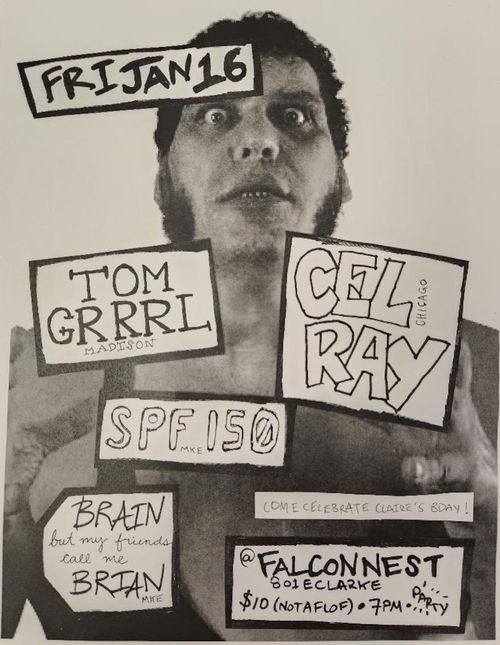 FRI JAN 16
TOM
GRRRL
MADISON
CEL
RAY
CHICAGO
SPF 150
MKE
BRAIN
but my friends
call me
BRIAN
MKE
COME CELEBRATE CLAIRE'S BDAY!
@FALCONNEST
801 E CLARKE
$10 (NOTAFLOF) • 7PM • PARTY